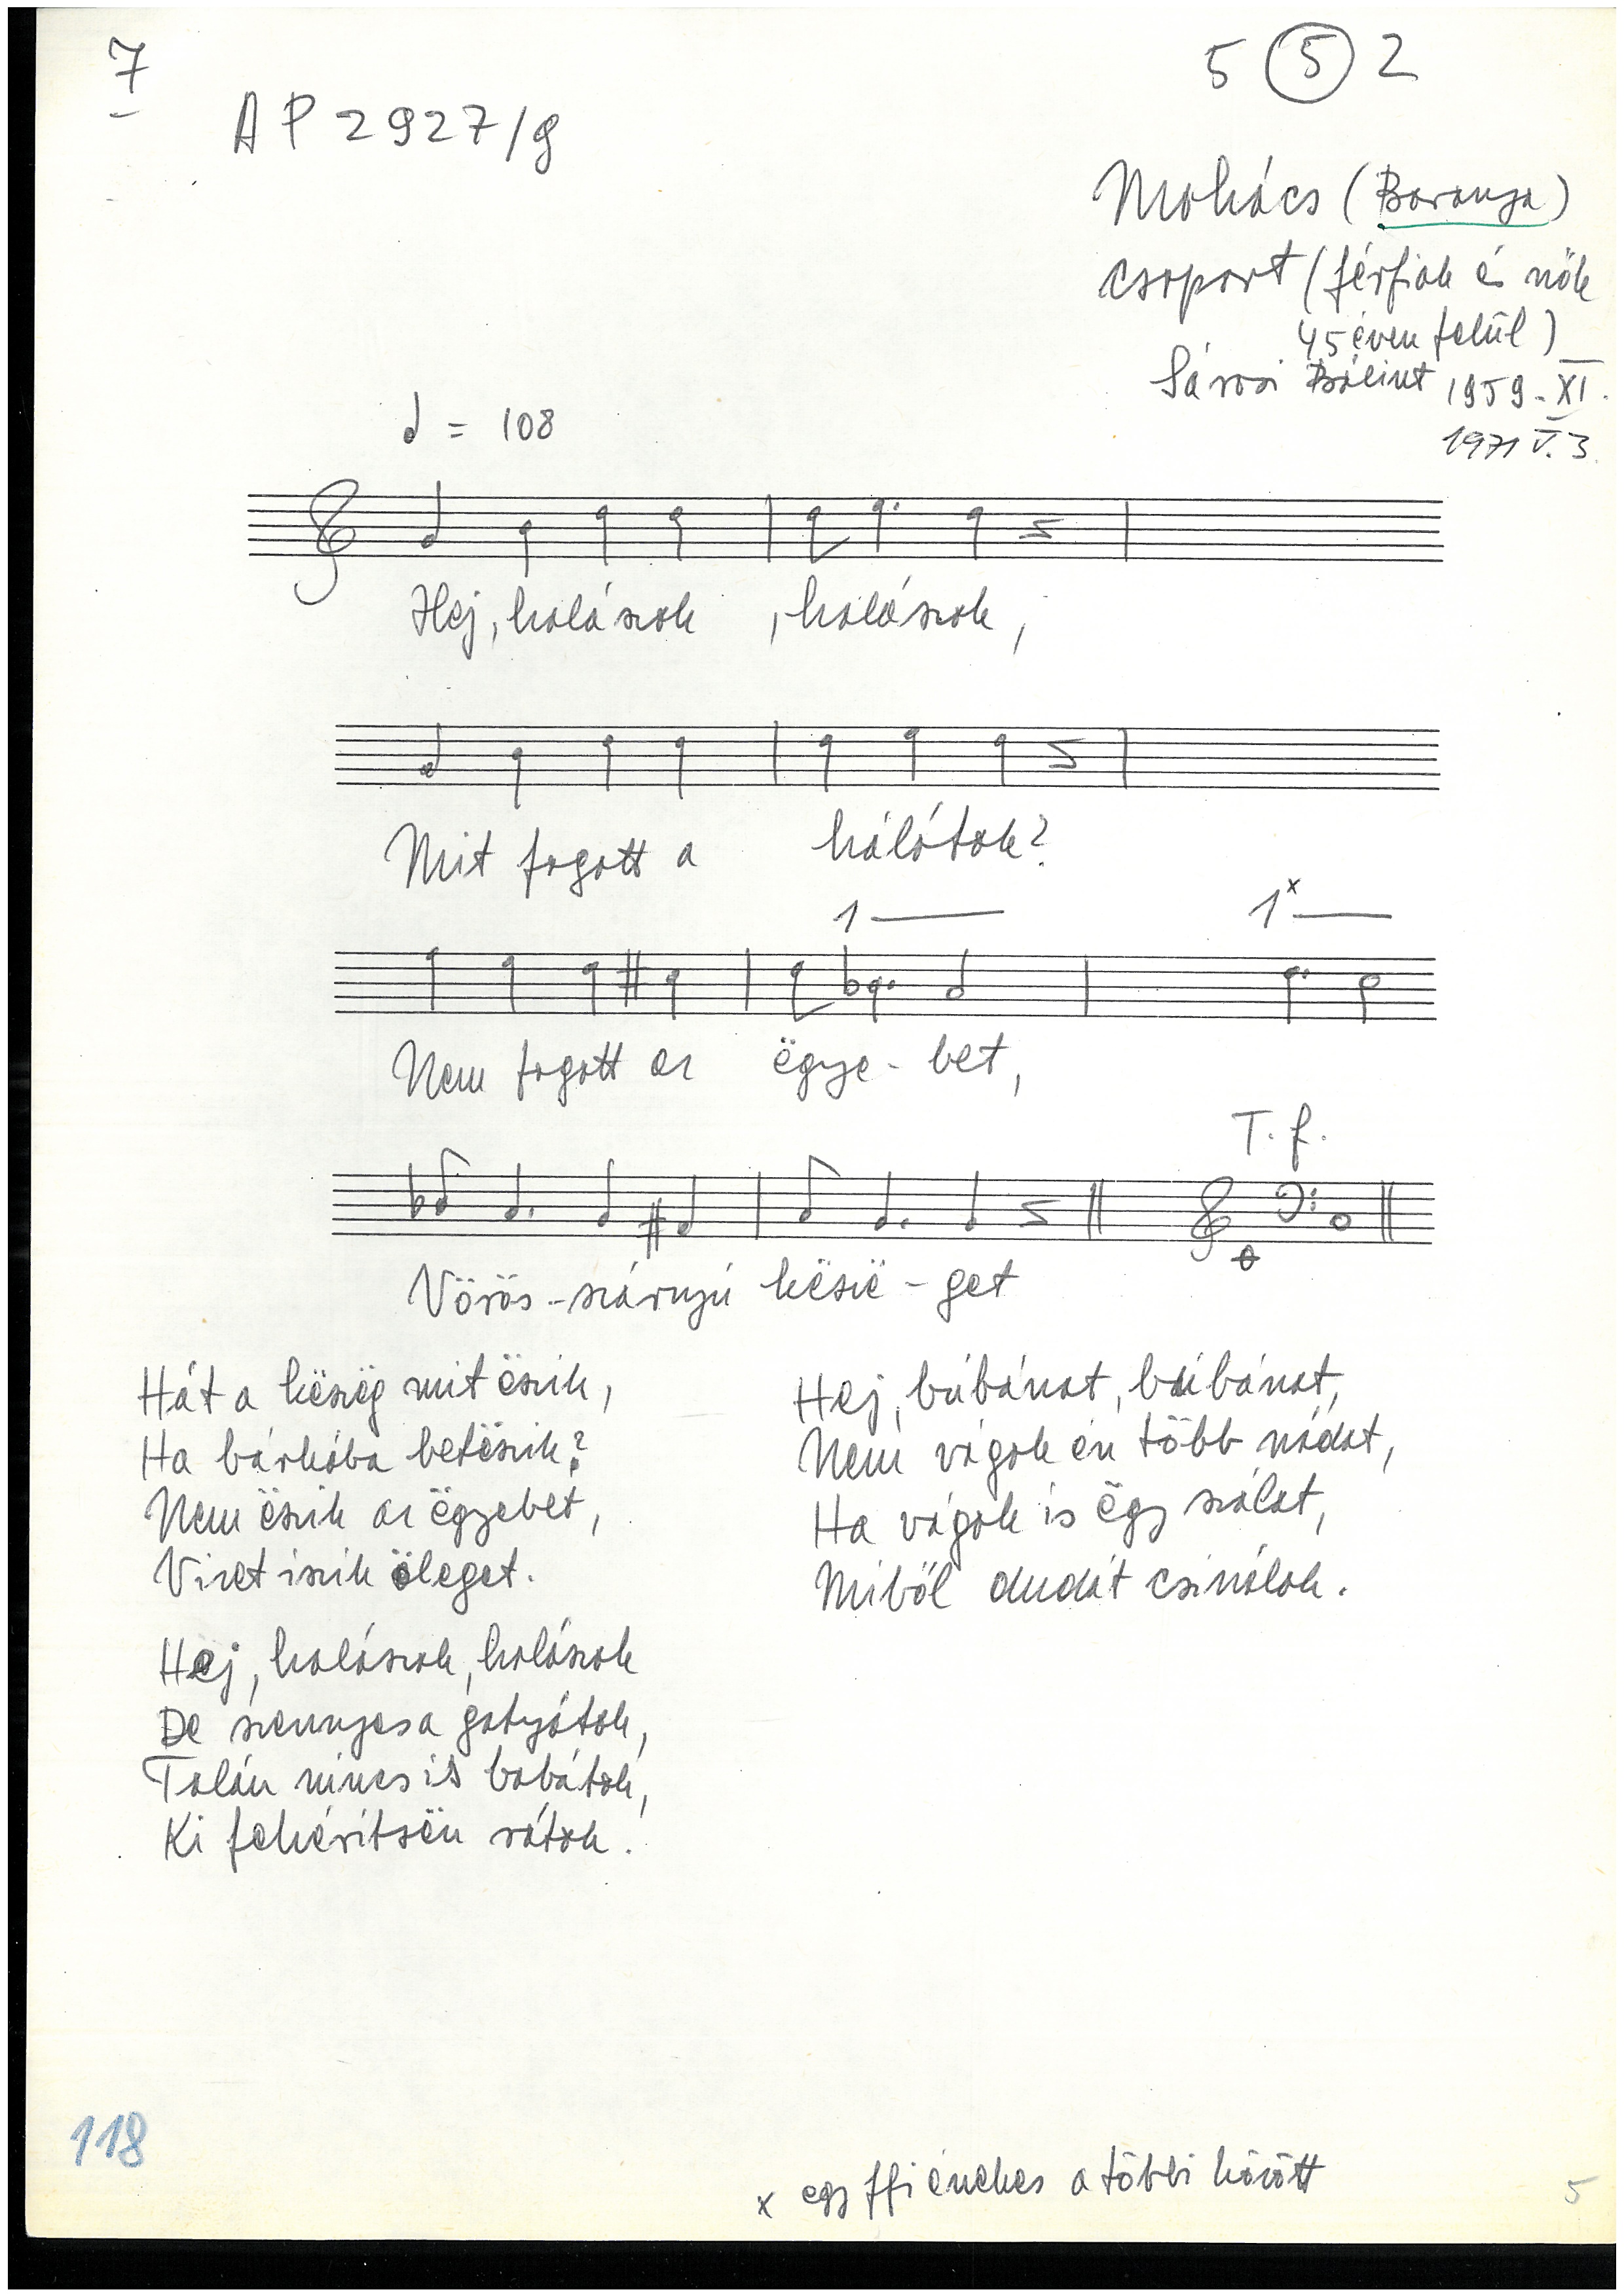 7
5 (5) 2
AP 2927/g
Mohács (Baranya)
csoport (férfiak és nők
45 éven felül)
Sárosi Bálint 1959. XI.
1971 V. 3.
= 108
Hej, halászok, halászok,
Mit fogott a hálótok?
1 1x
Nem fogott az ëgye-bet,
T. f.
Vörös-szárnyú këszë-get
Hát a këszëg mit ëszik,
Ha bárkába betëszik?
Nem ëszik az ëgyebet,
Vizet iszik ëleget.
Hej, halászok, halászok
De szennyes a gatyátok,
Talán nincs is babátok,
Ki fehérítsën rátok.
Hej, búbánat, búbánat,
Nem vágok én több nádat,
Ha vágok is ëgy szálat,
Miből dudát csinálok.
118
x egy ffiénekes a többi között
5